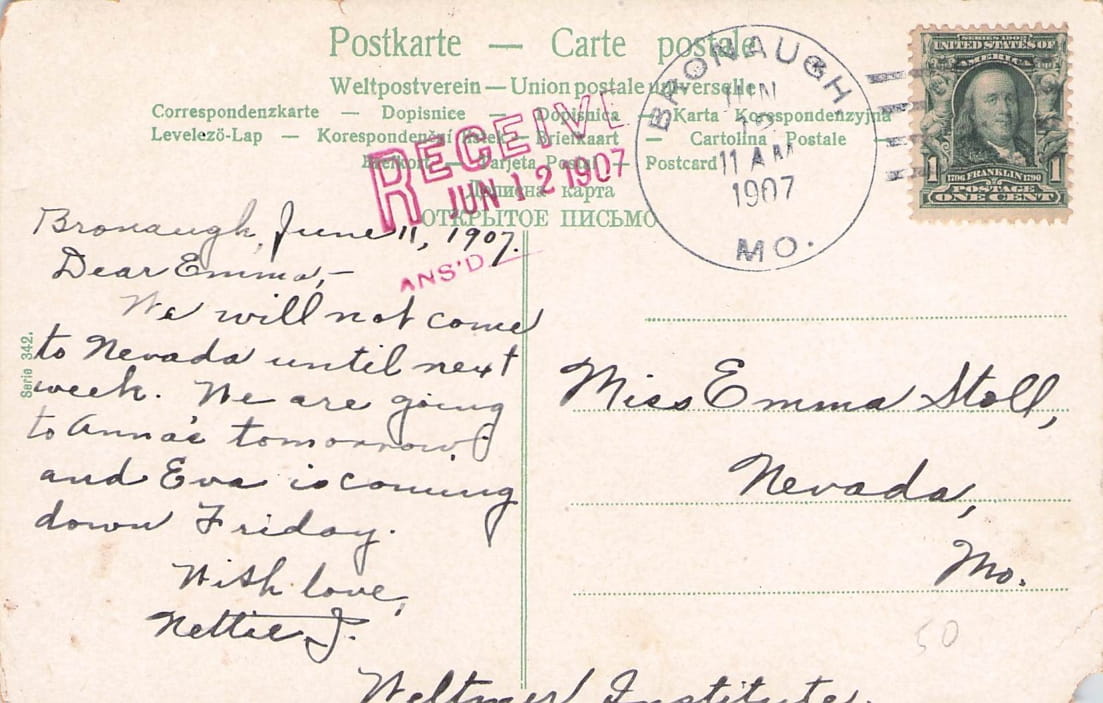 Postkarte — Carte postale
Weltpostverein — Union postale universelle
Correspondenzkarte — Dopisnice — Dopisnica — Karta Korespondenzyjna
Levelező-Lap — Korespondenční lístek — Brefkaart — Cartolina Postale —
Brefkort — Tarjeta Postal — Postcard
Дописна карта
ОТКРЫТОЕ ПИСЬМО
RECEIVE
JUN 12 1907
ANS'D
BRONAUGH
JUN
11 AM
1907
MO.
SERIES 1902
UNITED STATES OF
AMERICA
1 1706 FRANKLIN 1790 1
POSTAGE
ONE CENT
Bronaugh, June 11, 1907.
Dear Emma,—
We will not come
to Nevada until next
week. We are going
to Anna's tomorrow,
and Eva is coming
down Friday.
With love,
Nettie J.
Serie 342.
Miss Emma Stoll,
Nevada,
Mo.
50
Weltmer Institute.